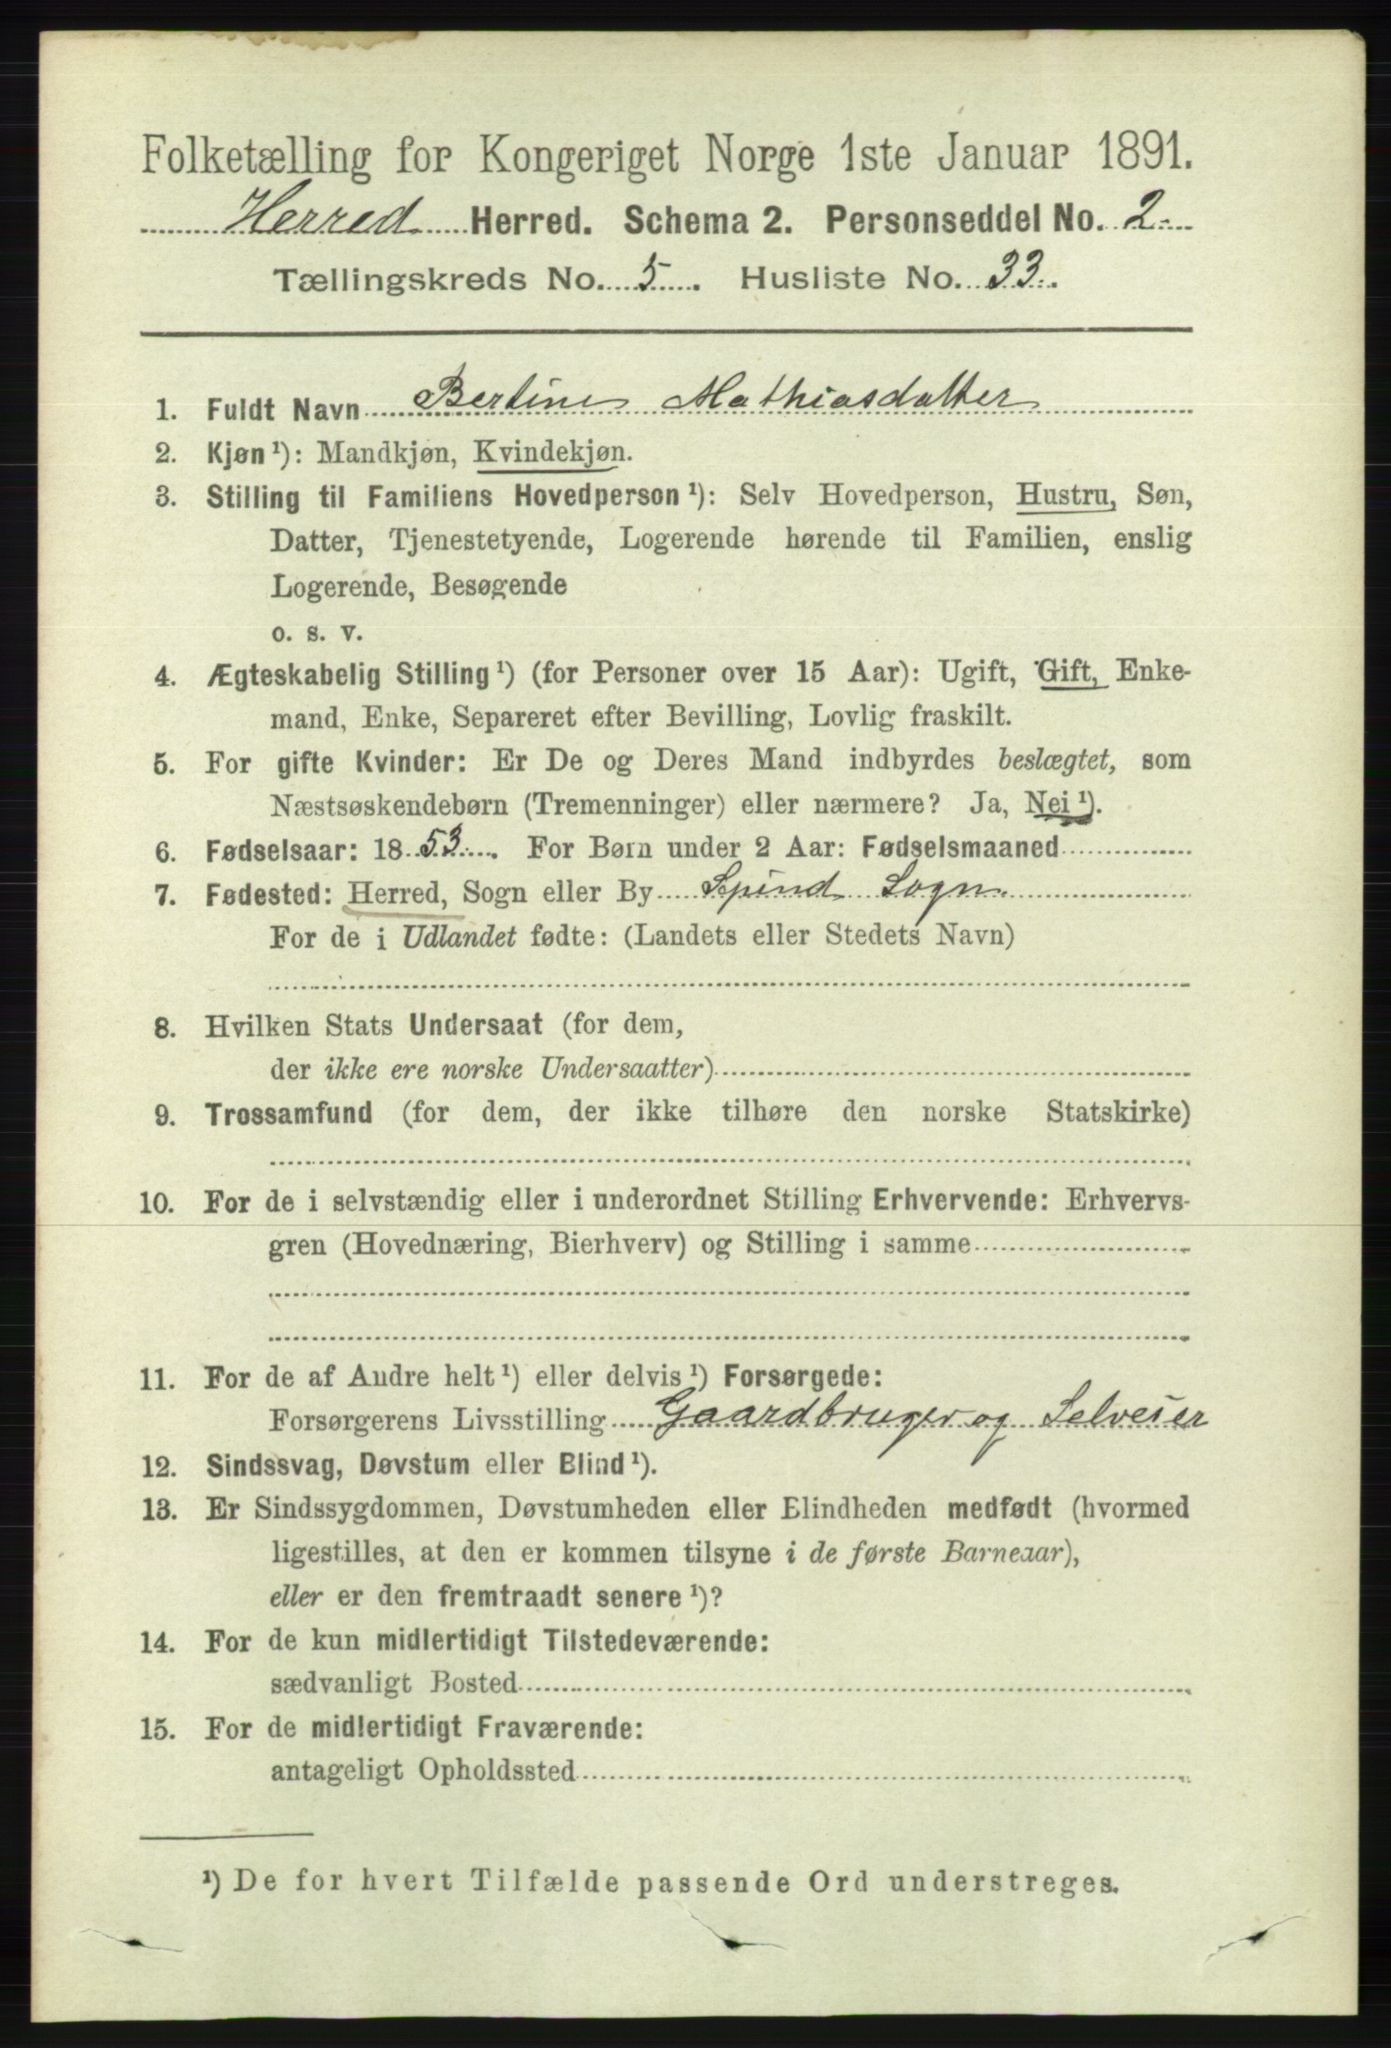 Folketælling for Kongeriget Norge 1ste Januar 1891.
Herred Herred. Schema 2. Personseddel No. 2
Tællingskreds No. 5. Husliste No. 33.
1. Fuldt Navn Bertine Mathiasdatter
2. Kjøn¹): Mandkjøn, Kvindekjøn.
3. Stilling til Familiens Hovedperson¹): Selv Hovedperson, Hustru, Søn,
Datter, Tjenestetyende, Logerende hørende til Familien, enslig
Logerende, Besøgende
o. s. v.
4. Ægteskabelig Stilling¹) (for Personer over 15 Aar): Ugift, Gift, Enke-
mand, Enke, Separeret efter Bevilling, Lovlig fraskilt.
5. For gifte Kvinder: Er De og Deres Mand indbyrdes beslægtet, som
Næstsøskendebørn (Tremenninger) eller nærmere? Ja, Nei¹).
6. Fødselsaar: 1853. For Børn under 2 Aar: Fødselsmaaned
7. Fødested: Herred, Sogn eller By Spind Sogn.
For de i Udlandet fødte: (Landets eller Stedets Navn)
8. Hvilken Stats Undersaat (for dem,
der ikke ere norske Undersaatter)
9. Trossamfund (for dem, der ikke tilhøre den norske Statskirke)
10. For de i selvstændig eller i underordnet Stilling Erhvervende: Erhvervs-
gren (Hovednæring, Bierhverv) og Stilling i samme
11. For de af Andre helt¹) eller delvis¹) Forsørgede:
Forsørgerens Livsstilling Gaardbruger og Selveier
12. Sindssvag, Døvstum eller Blind¹).
13. Er Sindssygdommen, Døvstumheden eller Blindheden medfødt (hvormed
ligestilles, at den er kommen tilsyne i de første Barneaar),
eller er den fremtraadt senere¹)?
14. For de kun midlertidigt Tilstedeværende:
sædvanligt Bosted
15. For de midlertidigt Fraværende:
antageligt Opholdssted
¹) De for hvert Tilfælde passende Ord understreges.